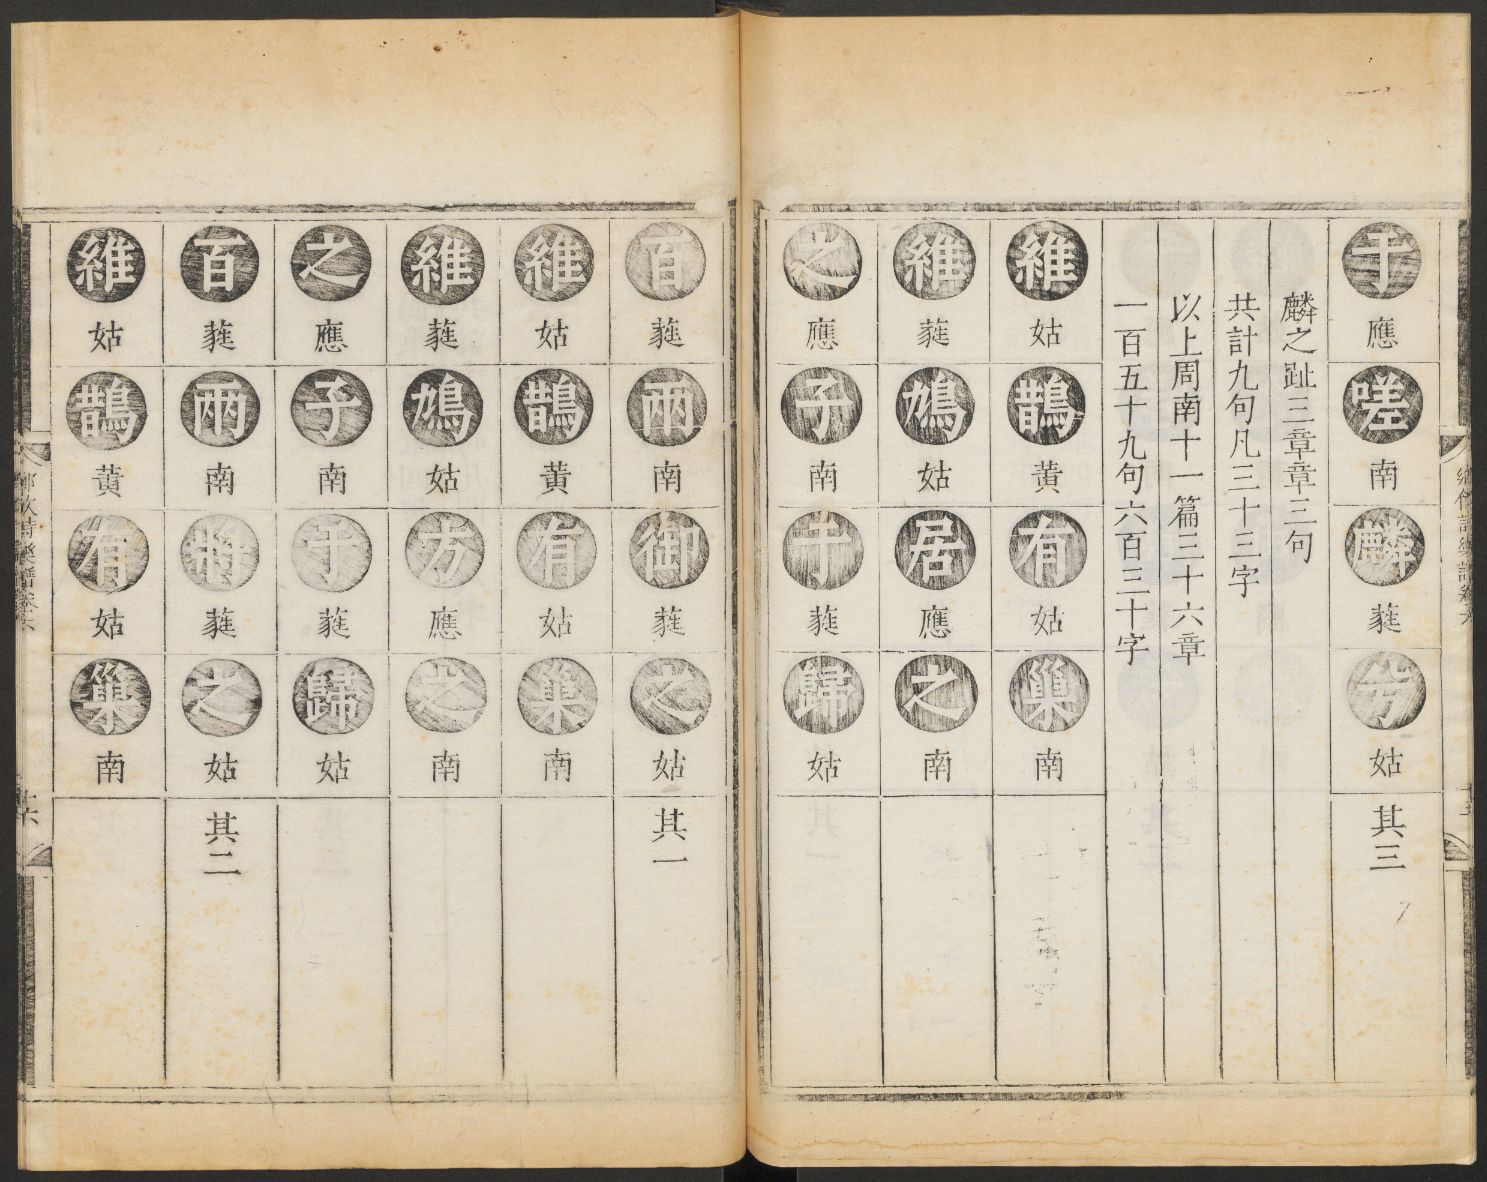 于應嗟南麟蕤兮姑其三
麟之趾三章章三句
共計九句凡三十三字
以上周南十一篇三十六章
一百五十九句六百三十字
維姑鵲黄有姑巢南
維蕤鳩姑居應之南
之應子南于蕤歸姑
百蕤兩南御蕤之姑其一
維姑鵲黄有姑巢南
維蕤鳩姑方應之南
之應子南于蕤歸姑
百蕤兩南將蕤之姑其二
維姑鵲黄有姑巢南
鄉飲詩樂譜卷六
十六